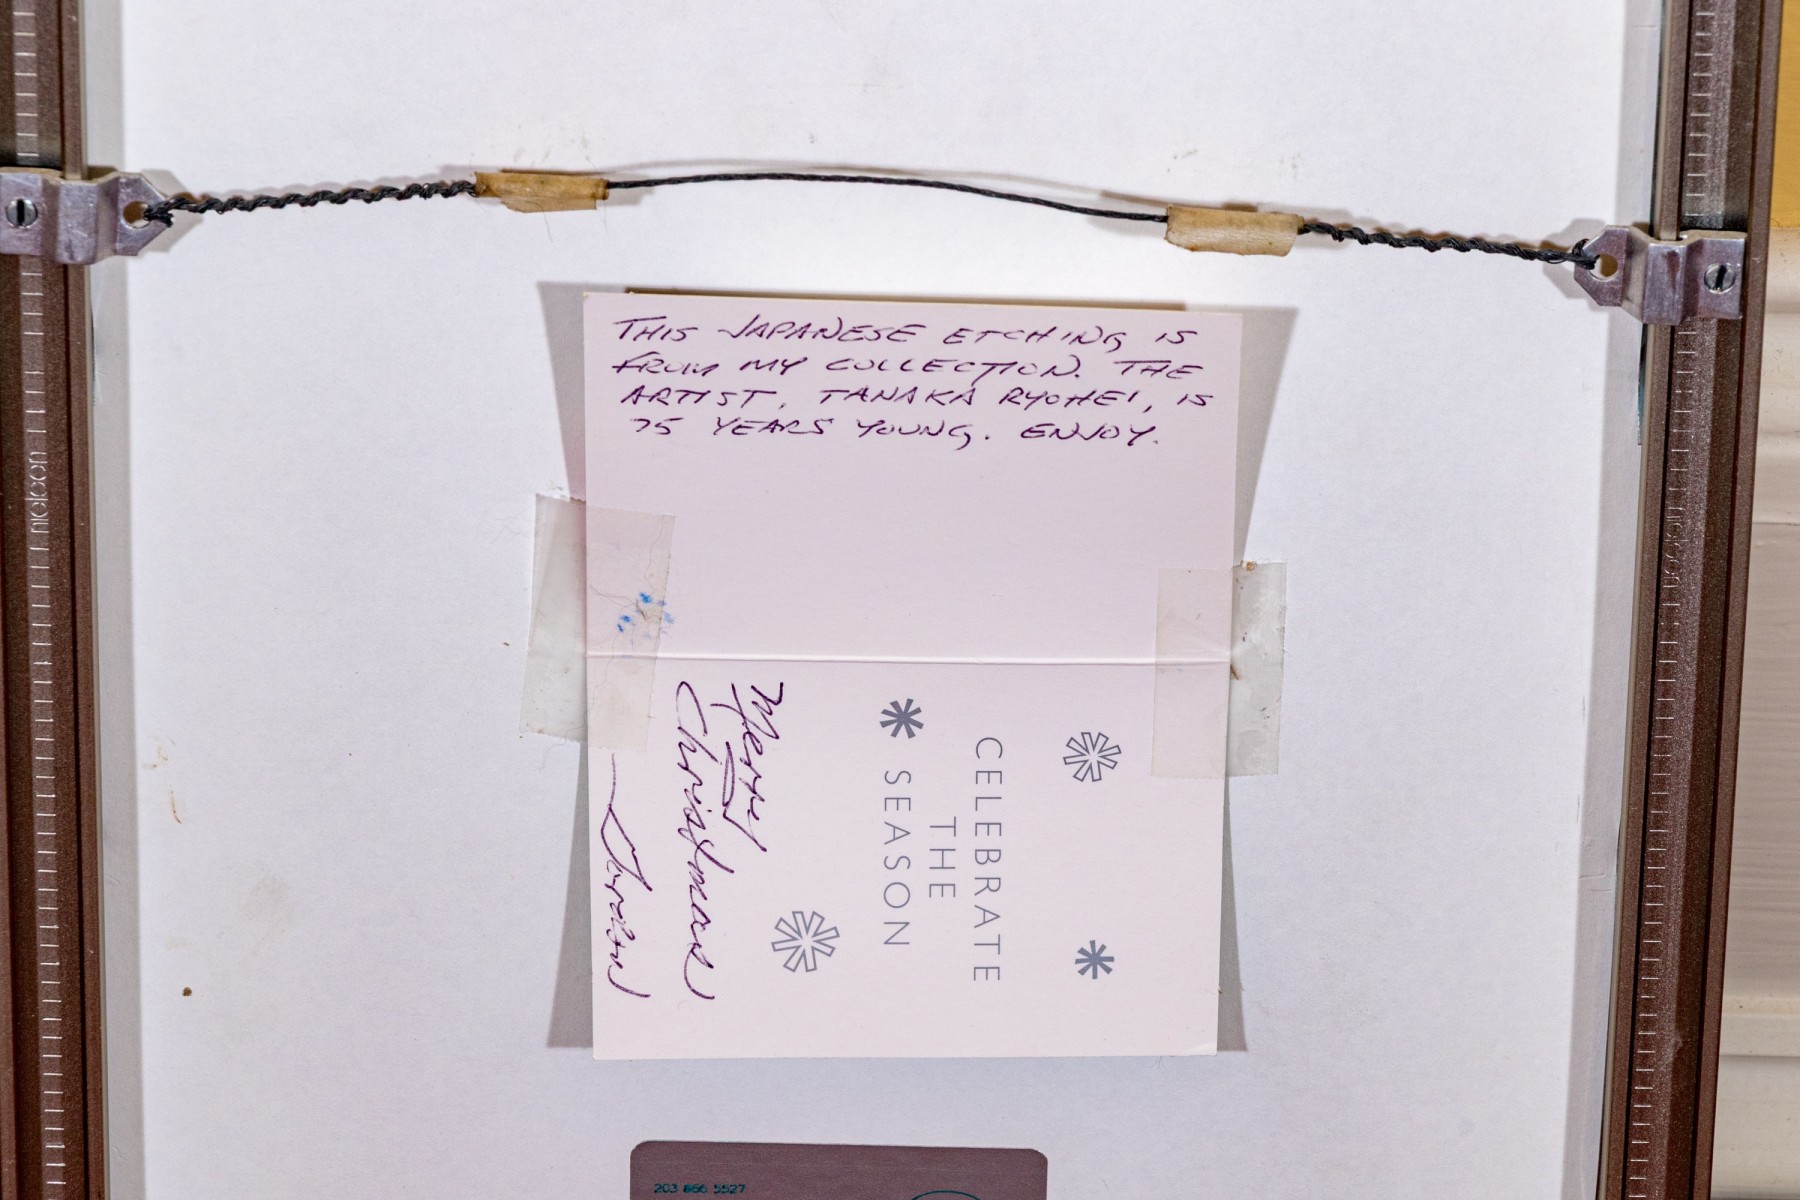 THIS JAPANESE ETCHING IS
FROM MY COLLECTION. THE
ARTIST, TANAKA RYOHEI, IS
75 YEARS YOUNG. ENJOY.
CELEBRATE
THE
SEASON
Merry
Christmas
nielsen
203 866 5527